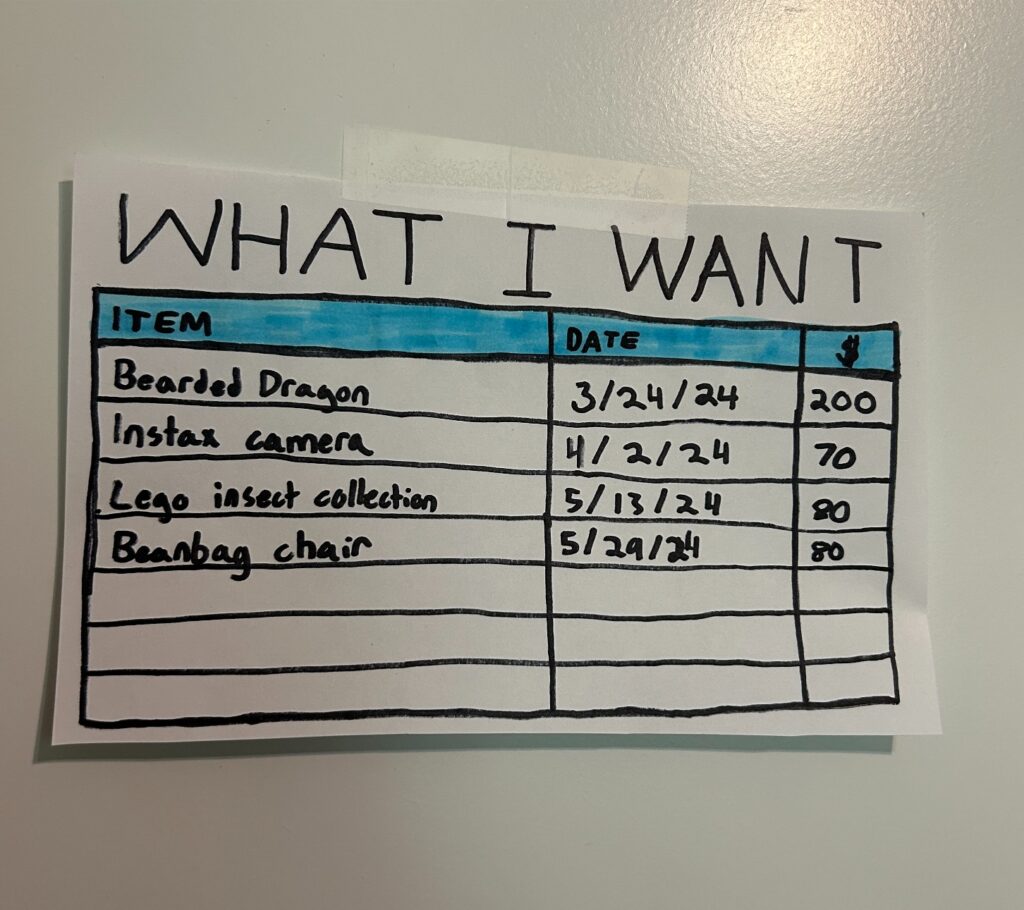 WHAT I WANT
ITEM DATE $
Bearded Dragon 3/24/24 200
Instax camera 4/2/24 70
Lego insect collection 5/13/24 80
Beanbag chair 5/29/24 80